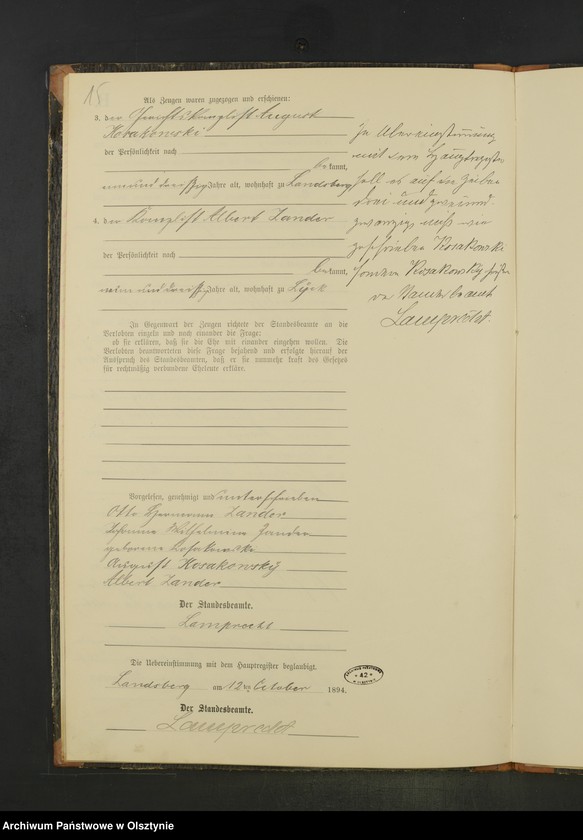 15
Als Zeugen waren zugezogen und erschienen:
3. der Gerichtskanzlist August
Kosakowski
der Persönlichkeit nach
bekannt,
neununddreißig Jahre alt, wohnhaft zu Landsberg
4. der Kanzlist Albert Zander
der Persönlichkeit nach
bekannt,
neun und dreißig Jahre alt, wohnhaft zu Lyck
In Gegenwart der Zeugen richtete der Standesbeamte an die
Verlobten einzeln und nach einander die Frage:
ob sie erklären, daß sie die Ehe mit einander eingehen wollen. Die
Verlobten beantworteten diese Frage bejahend und erfolgte hierauf der
Ausspruch des Standesbeamten, daß er sie nunmehr kraft des Gesetzes
für rechtmäßig verbundene Eheleute erkläre.
Vorgelesen, genehmigt und unterschrieben
Otto Hermann Zander
Johanna Wilhelmine Zander
geborene
August Kosakowsky
Albert Zander
Der Standesbeamte.
Lamprecht
Die Uebereinstimmung mit dem Hauptregister beglaubigt.
Landsberg am 12ten October 1894.
Der Standesbeamte.
Lamprecht
In Übereinstimmung
mit dem Hauptregister
soll es auf der Zeile
drei und zwei und
zwanzig nicht wie
geschrieben Kosakowski
sondern Kosakowsky heißen
Der Standesbeamte
Lamprecht
42
Archiwum Państwowe w Olsztynie